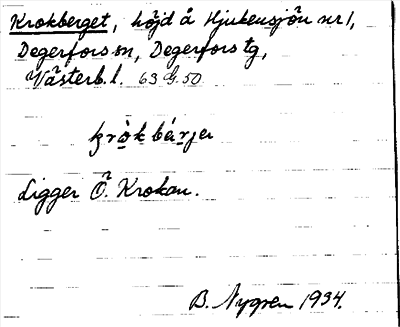 Krokberget, höjd å Hjukensjön nr 1,
Degerfors sn, Degerfors tg,
Västerb. l. 63 G. 50
kròkbærjer
Ligger Ö. Krokan.
B. Nygren 1934.